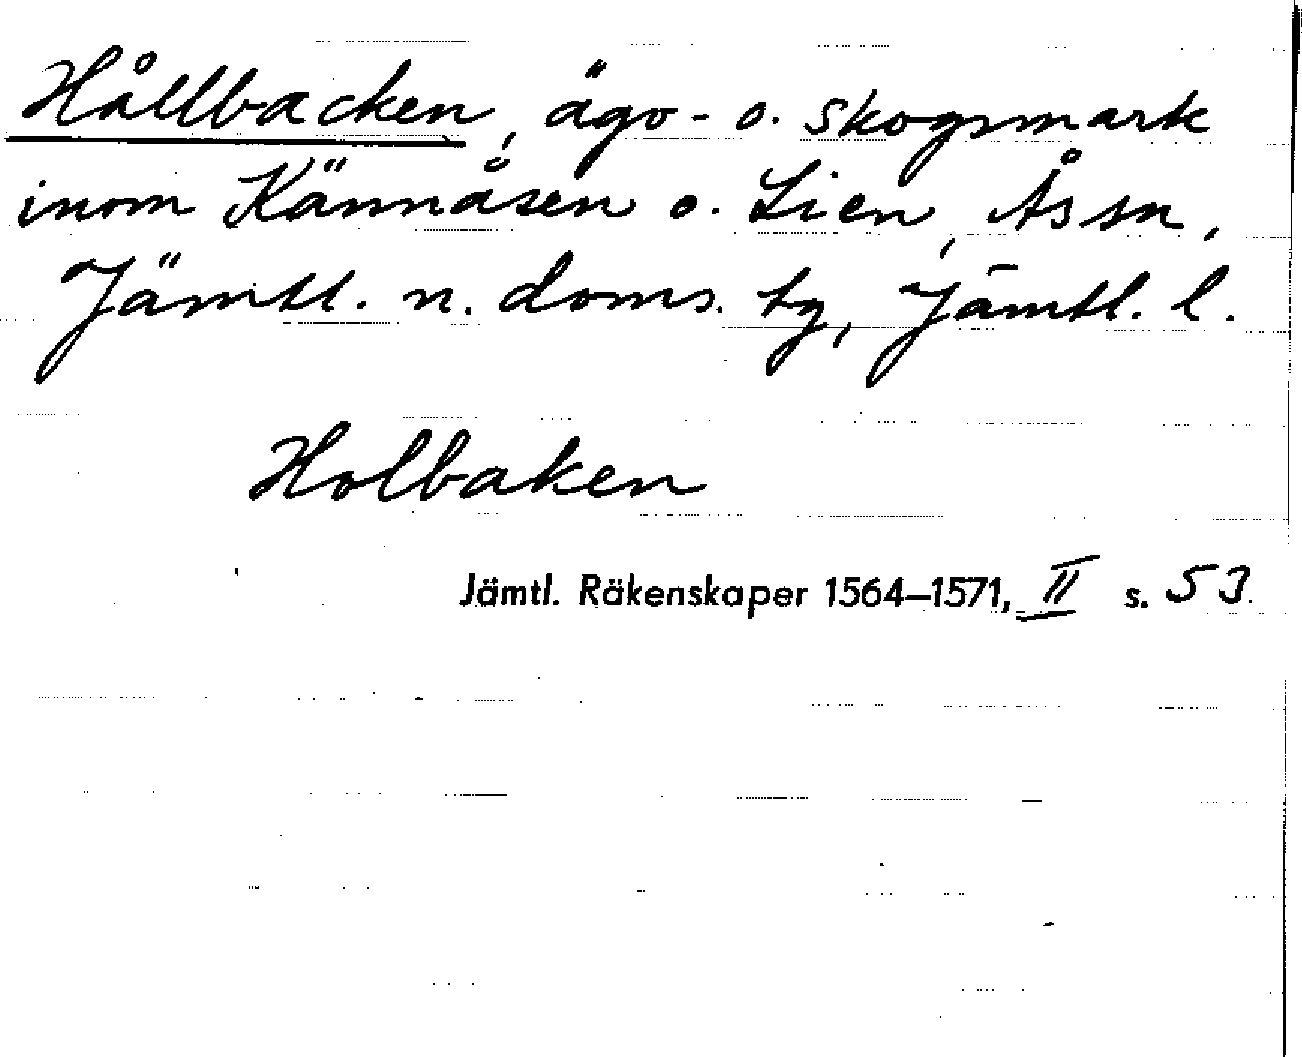 Hållbacken, ägo- o. skogsmark
inom Kännåsen o. Lien, Ås sn,
Jämtl. n. doms. tg, Jämtl. l.
Holbaken
Jämtl. Räkenskaper 1564–1571, II s. 53.